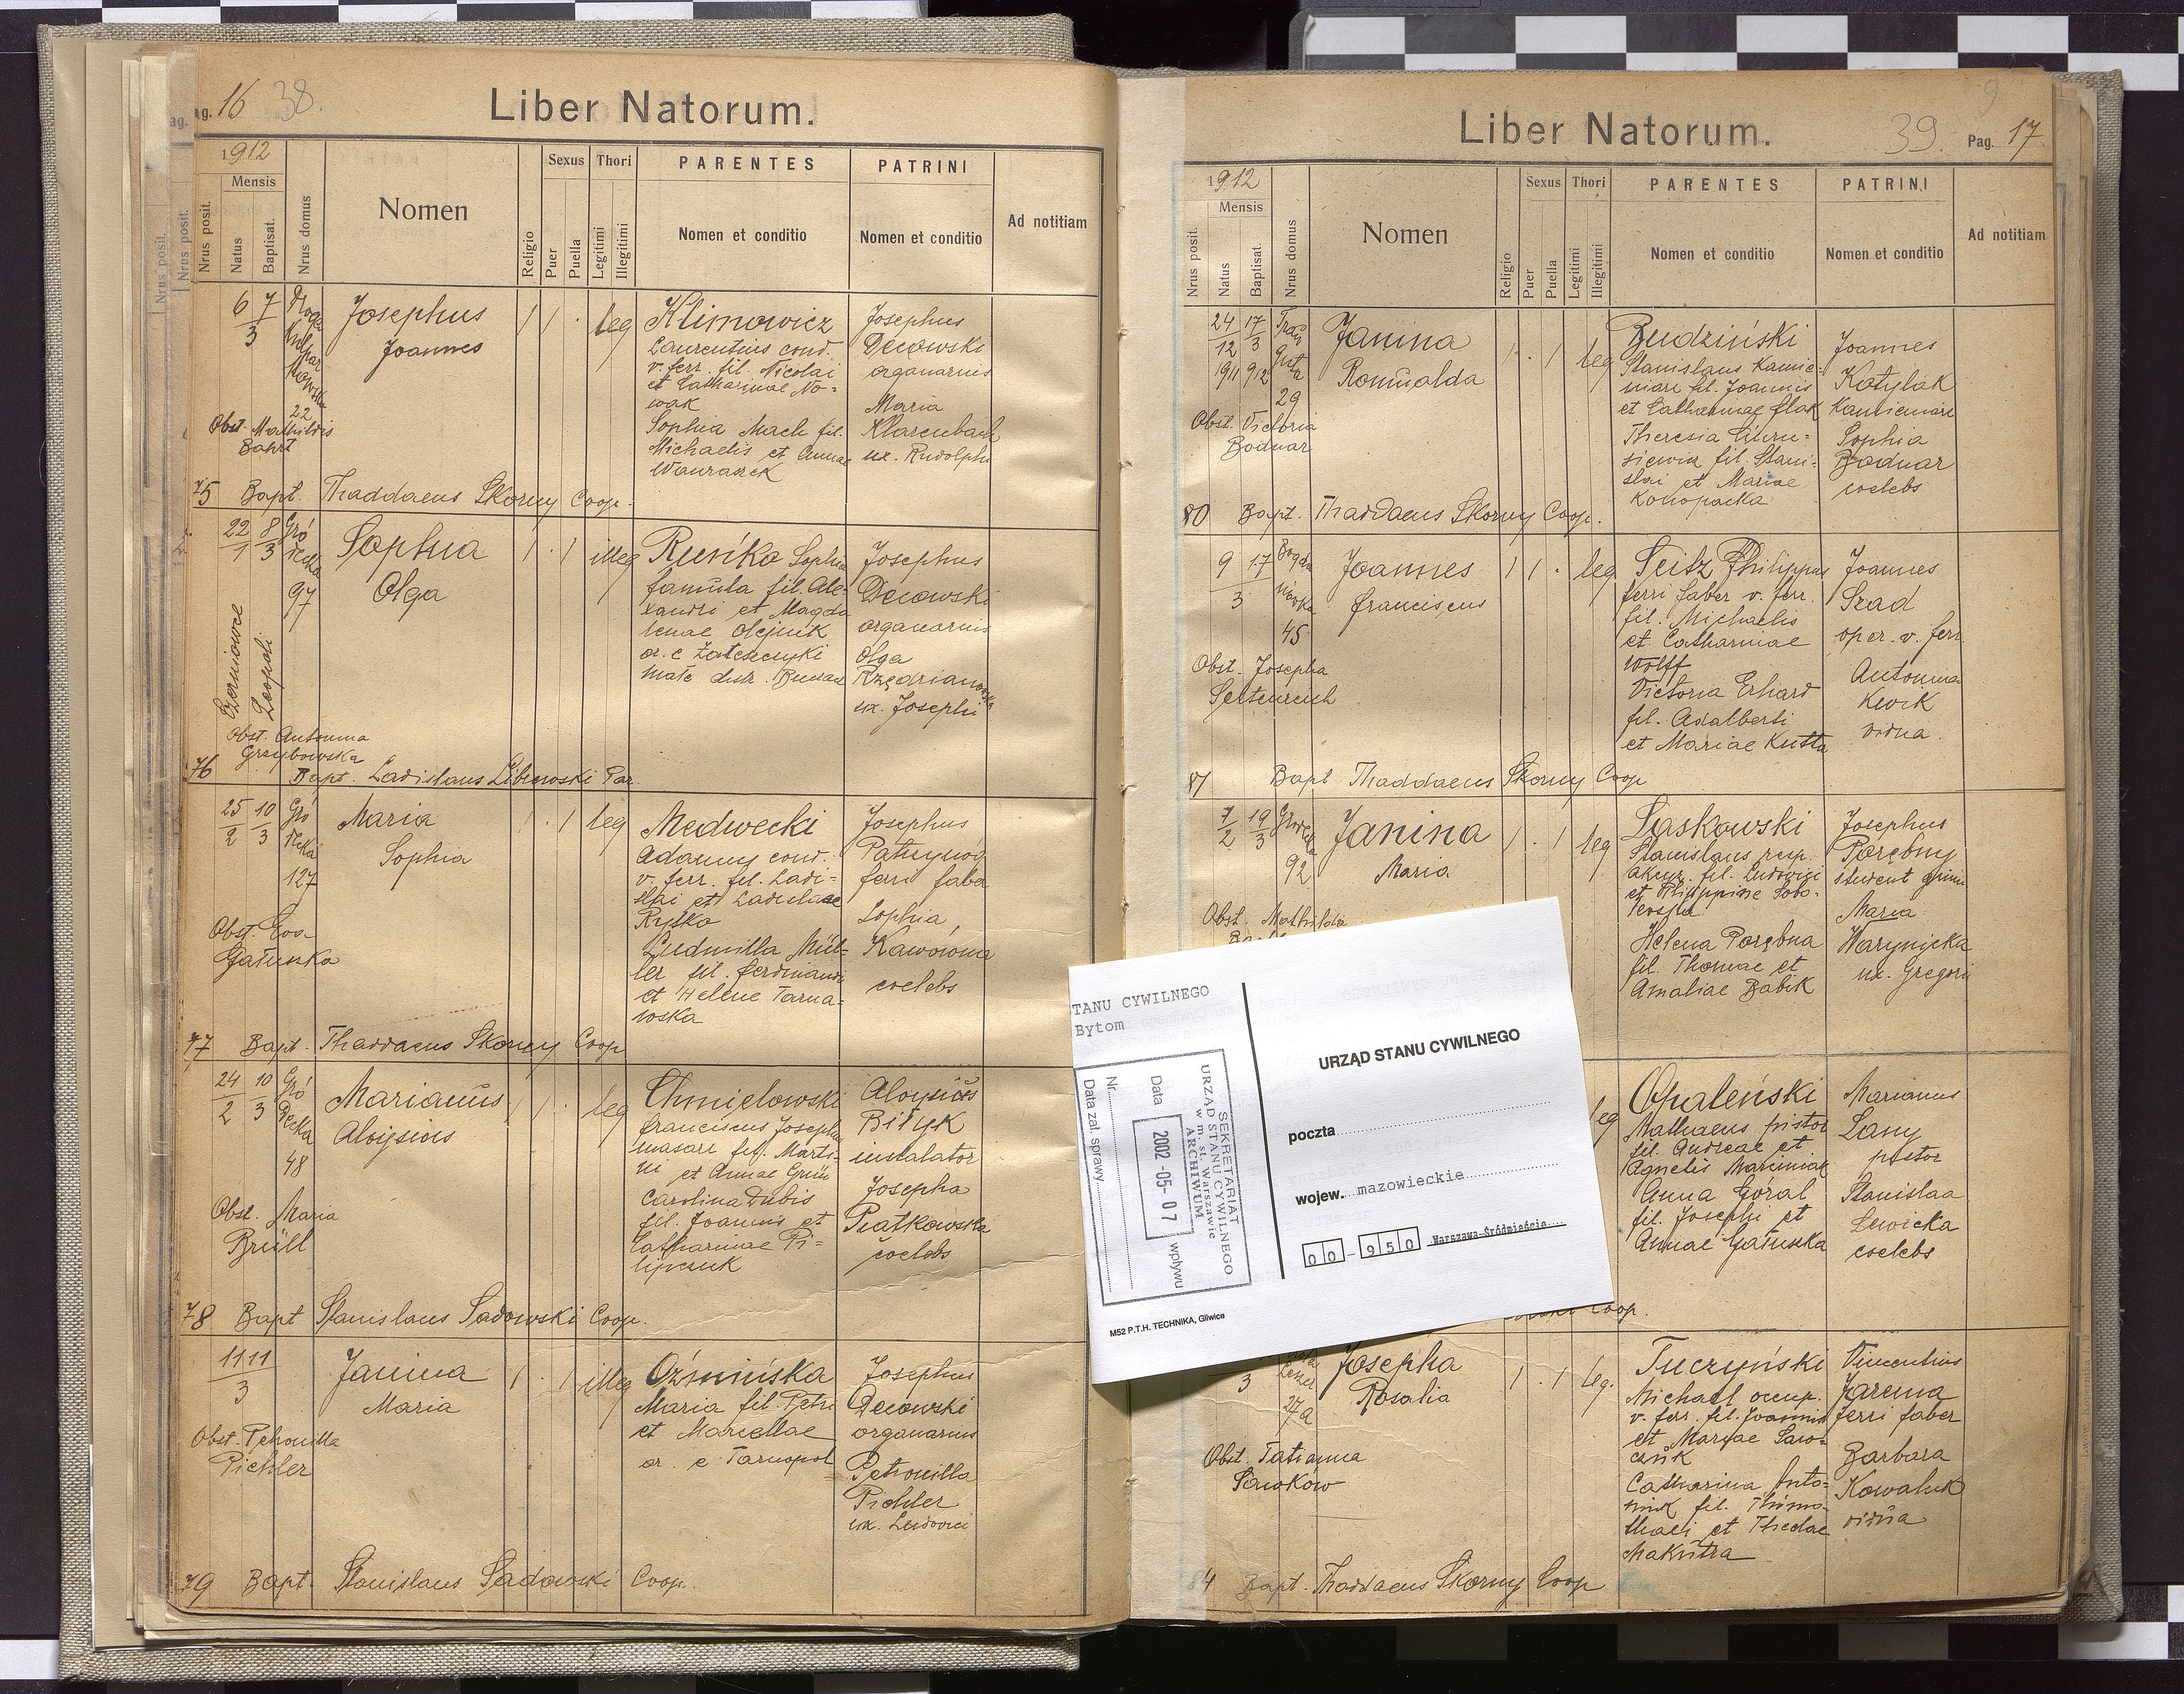 Pag. 16 38.
Liber Natorum.
1912
Mensis
Nrus posit.
Natus
Baptisat.
Nrus domus
Nomen
Religio
Sexus
Puer
Puella
Thori
Legitimi
Illegitimi
PARENTES
Nomen et conditio
PATRINI
Nomen et conditio
Ad notitiam
6 7
3
22
Obst. Mathildis
Bahrt
Josephus
Joannes
1 1 . leg
Klimowicz
Laurentius cond.
v. ferr. fil. Nicolai
et Catharinae No-
wak
Sophia Mach fil.
Michaelis et Annae
Josephus
Decowski
organarius
Maria
Klarenbach
ux. Rudolphi
75 Bapt. Thaddaeus Skorny Coop.
22 8
1 3
Gró
decka
97
Czerniowce
Leopoli
Obst. Antonina
Grzybowska
Sophia
Olga
1 . 1 illeg
Runko Sophia
famula fil. Ale-
xandri et Magda
lenae Olejnik
or. e Zaleszczyki
małe distr.
Josephus
Decowski
organarius
Olga
Rzędrianowska
ux. Josephi
76 Bapt. Ladislaus Par.
25 10
2 3
Gró
decka
127
Obst. Eva
Gałuszka
Maria
Sophia
1 . 1 leg
Medwecki
Adamus cond.
v. ferr. fil. Ladi-
slai et Ladislaae
Rytko
Ludmilla Mül-
ler fil. Ferdinandi
et Helene Tarna-
wska
Josephus
ferri faber
Sophia
coelebs
77 Bapt. Thaddaeus Skorny Coop
24 10
2 3
Gró
decka
48
Obst. Maria
Brüll
Marianus
Aloisius
1 1 . leg
Chmielowski
Franciscus Josephus
masarz fil. Marti-
ni et Annae Grün
Carolina Dubis
fil. Joannis et
Catharinae Pi-
lipczuk
Aloysius
Biłyk
instalator
Josepha
Piatkowska
coelebs
78 Bapt Stanislaus Sadowski Coop.
11 11
3
Obst. Petronilla
Pichler
Janina
Maria
1 . 1 illeg
Oźmińska
Maria fil. Petri
et Marcellae
or. e Tarnopol
Josephus
Decowski
organarius
Petronilla
Pichler
ux. Ludovici
79 Bapt. Stanislaus Sadowski Coop.
Liber Natorum.
39. Pag. 17
1912
Mensis
Nrus posit.
Natus
Baptisat.
Nrus domus
Nomen
Religio
Sexus
Puer
Puella
Thori
Legitimi
Illegitimi
PARENTES
Nomen et conditio
PATRINI
Nomen et conditio
Ad notitiam
24 17
12 3
1911 912
Trau
guta
29
Obst. Victoria
Bodnar
Janina
Romualda
1 . 1 leg
Budziński
Stanislaus kamie-
niarz fil. Joannis
et Catharinae Flak
Theresia
fil. Stani-
slai et Mariae
Konopacka
Joannes
Kotylak
Kamieniarz
Sophia
Bodnar
coelebs
80 Bapt. Thaddaeus Skorny Coop.
9 17
3
Bogda
nówka
45
Obst. Josepha
Seltenreich
Joannes
Franciscus
1 1 . leg
Seitz Philippus
ferri faber v. ferr.
fil. Michaelis
et Catharinae
Wolff
Victoria Erhard
fil. Adalberti
et Mariae Kutta
Joannes
Szad
oper. v. ferr.
Antonina
Kwik
vidua.
81 Bapt Thaddaeus Skorny Coop
7 19
2 3
Grodecka
92
Obst. Mathilda
Janina
Maria
1 . 1 leg
Laskowski
Stanislaus resp.
akcyz. fil. Ludovici
et Philippine Sobo-
Helena Porębna
fil. Thomae et
Amaliae Babik
Josephus
Porębny
student gimn
Maria
Warynicka
ux. Gregorii
leg
Opaleński
Mathaeus pistor
fil. Andreae et
Agnetis Marciniak
Anna Góral
fil. Josephi et
Annae Gałuszka
Marianus
Lany
pistor
Stanislaa
Lewicka
coelebs
Coop.
TANU CYWILNEGO
Bytom
SEKRETARIAT
URZĄD STANU CYWILNEGO
w m. st. Warszawie
ARCHIWUM
Data 2002 -05- 07 wpływu
Nr.
Data zał. sprawy
M52 P.T.H. TECHNIKA, Gliwice
URZĄD STANU CYWILNEGO
poczta
wojew. mazowieckie
00-950 Warszawa-Śródmieście
3
27a
Obst. Tatianna
Sawków
Josepha
Rosalia
1 . 1 leg.
Tuczyński
Michael occup.
v. ferr. fil. Joannis
et Maryae Saw-
czuk
Catharina Anto-
niuk fil. Thimo-
thaei et Theclae
Makutra
Vincentius
Jarema
ferri faber
Barbara
Kowaluk
vidua
84 Bapt. Thaddaeus Skorny Coop